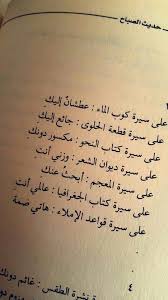 حديث الصباح
على سيرة كوب الماء : عطشانٌ إليك
على سيرة قطعة الحلوى : جائع إليك
على سيرة كتاب النحو : مكسور دونك
على سيرة ديوان الشعر : وزني أنت
على سيرة المعجم : أبحثُ عنك
على سيرة كتاب الجغرافيا : عالمي أنت
على سيرة قواعد الإملاء : هاتي ضمة
٤
نشرة الطقس : غائم دونك